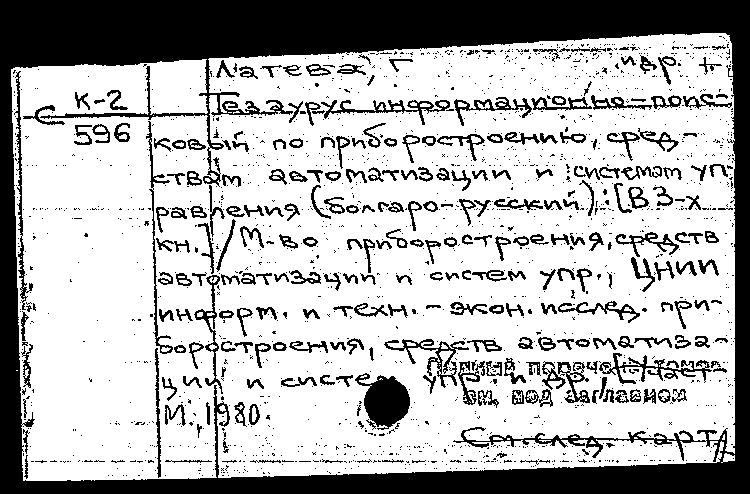 Латева, Г и др. +
К-2
596
Тезаурус информационно-поис-
ковый по приборостроению, сред-
ствам автоматизации и системам уп-
равления (болгаро-русский): [В 3-х
кн.] / М-во приборостроения, средств
автоматизации и систем упр., ЦНИИ
информ. и техн.-экон. исслед. при-
боростроения, средств автоматиза-
ции и систем упр. и др.,
Полный перечень томов
см. под заглавном
М., 1980.
См. след. карт